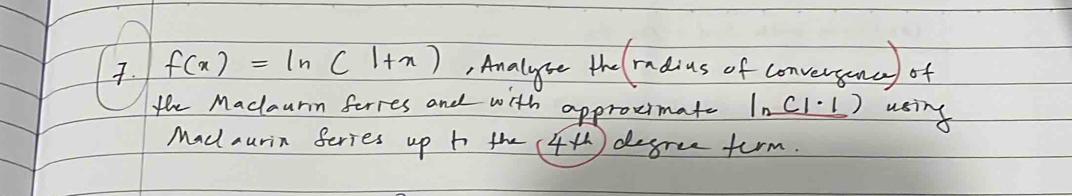 7. f(x) = ln ( 1+x ) , Analyse the (radius of convergence) of
the Maclaurin Series and with approximate ln(1.1) using
Maclaurin Series up to the 4th degree term.